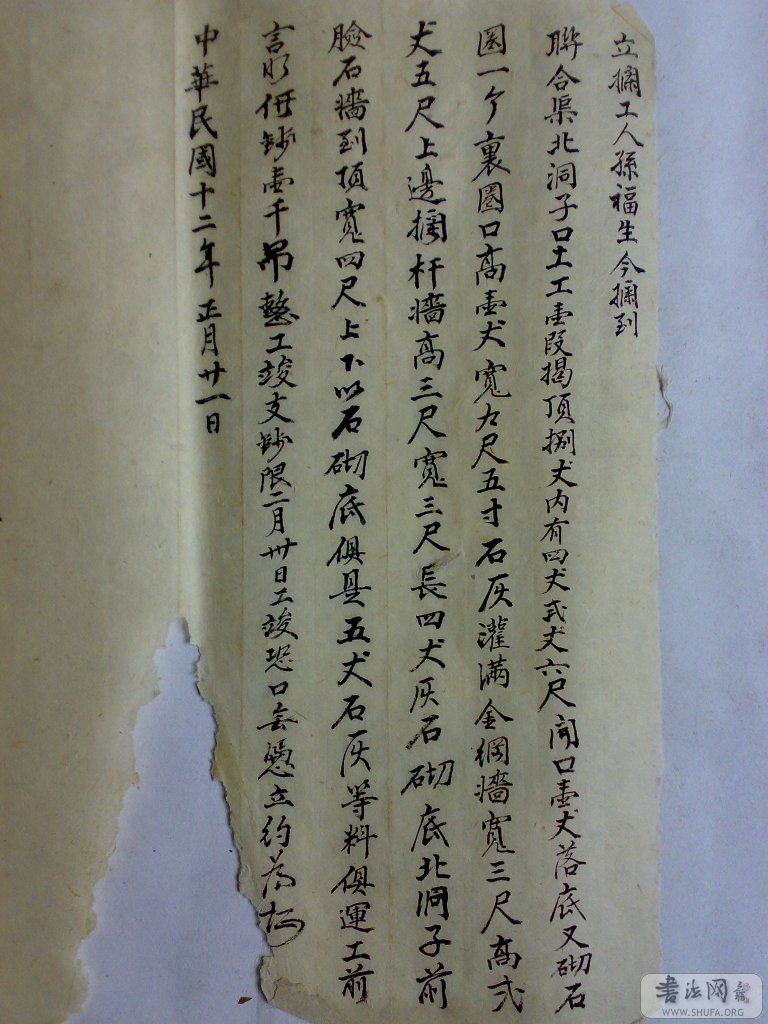 立攔工人孫福生今攔到
聯合渠北洞子口土工壹段揭頂捌丈内有四丈弍丈六尺開口壹丈落底又砌石
圈一个裏圈口高壹丈寬九尺五寸石灰灌滿金綱墻寬三尺高弍
丈五尺上邊攔杆墻高三尺寬三尺長四丈灰石砌底北洞子前
臉石墻到頂寬四尺上下以石砌底俱是五丈石灰等料俱運工前
言明併鈔壹千吊整工竣支鈔限二月卅日工竣恐口無憑立約為証
中華民國十二年正月廿一日
書法网
WWW.SHUFA.ORG